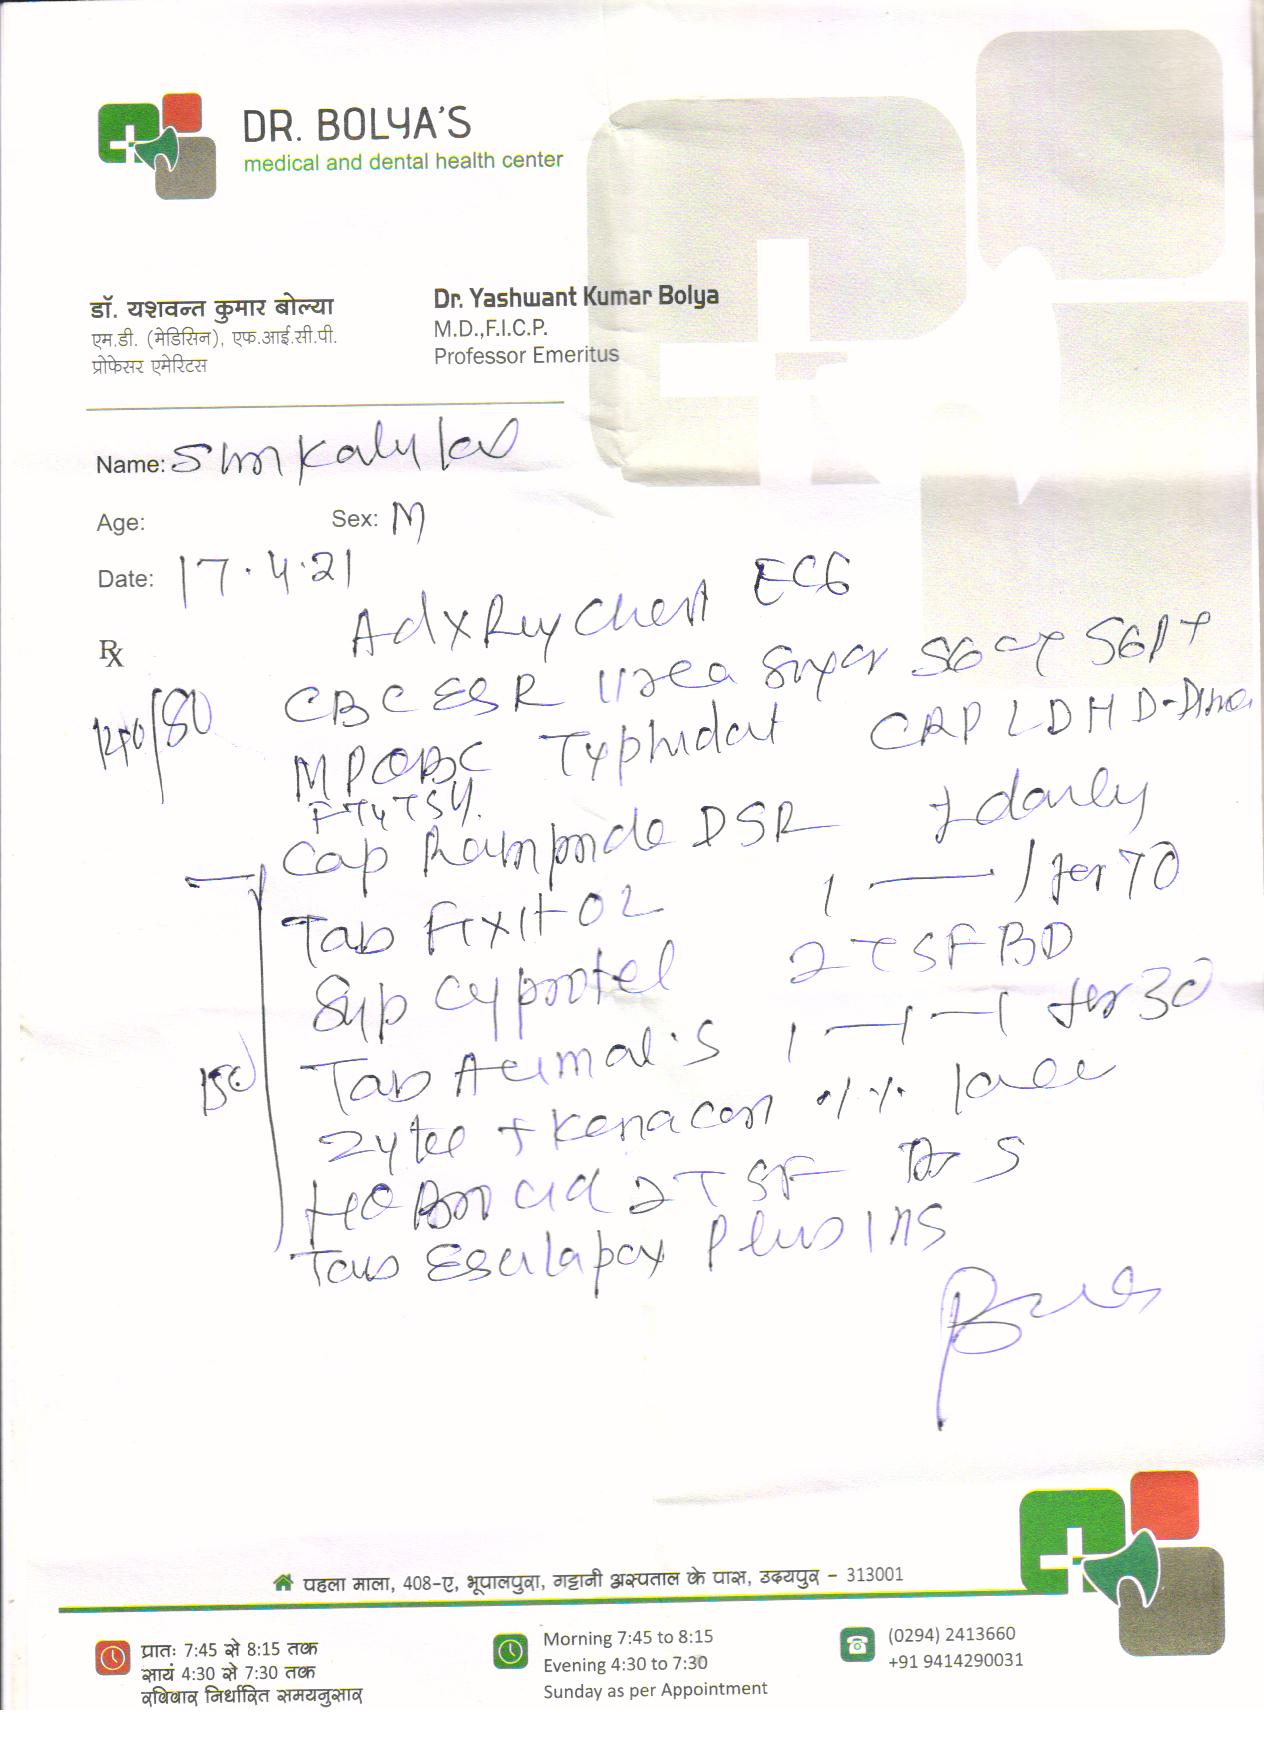 DR. BOLYA'S
medical and dental health center
डॉ. यशवन्त कुमार बोल्या
एम.डी. (मेडिसिन), एफ.आई.सी.पी.
प्रोफेसर एमेरिटस
Dr. Yashwant Kumar Bolya
M.D.,F.I.C.P.
Professor Emeritus
Name:
Age: Sex: M
Date: 17.4.21
Rx
Ad X Ray Chest ECG
CBC ESR Urea Sugar SGOT SGPT
140/80
MP QBC Typhidot CRP LDH D-Dimer
Cap DSR 1 daily
Tab Fixit 02 1 — 1 for 70
Syp Cyprotel 2 TSF BD
Tab 1 — 1 — 1 for 30
Zytee + Kenacort
2 TSF
Tab Plus
पहला माला, 408-ए, भूपालपुरा, गट्टानी अस्पताल के पास, उदयपुर - 313001
प्रातः 7:45 से 8:15 तक
सायं 4:30 से 7:30 तक
रविवार निर्धारित समयनुसार
Morning 7:45 to 8:15
Evening 4:30 to 7:30
Sunday as per Appointment
(0294) 2413660
+91 9414290031